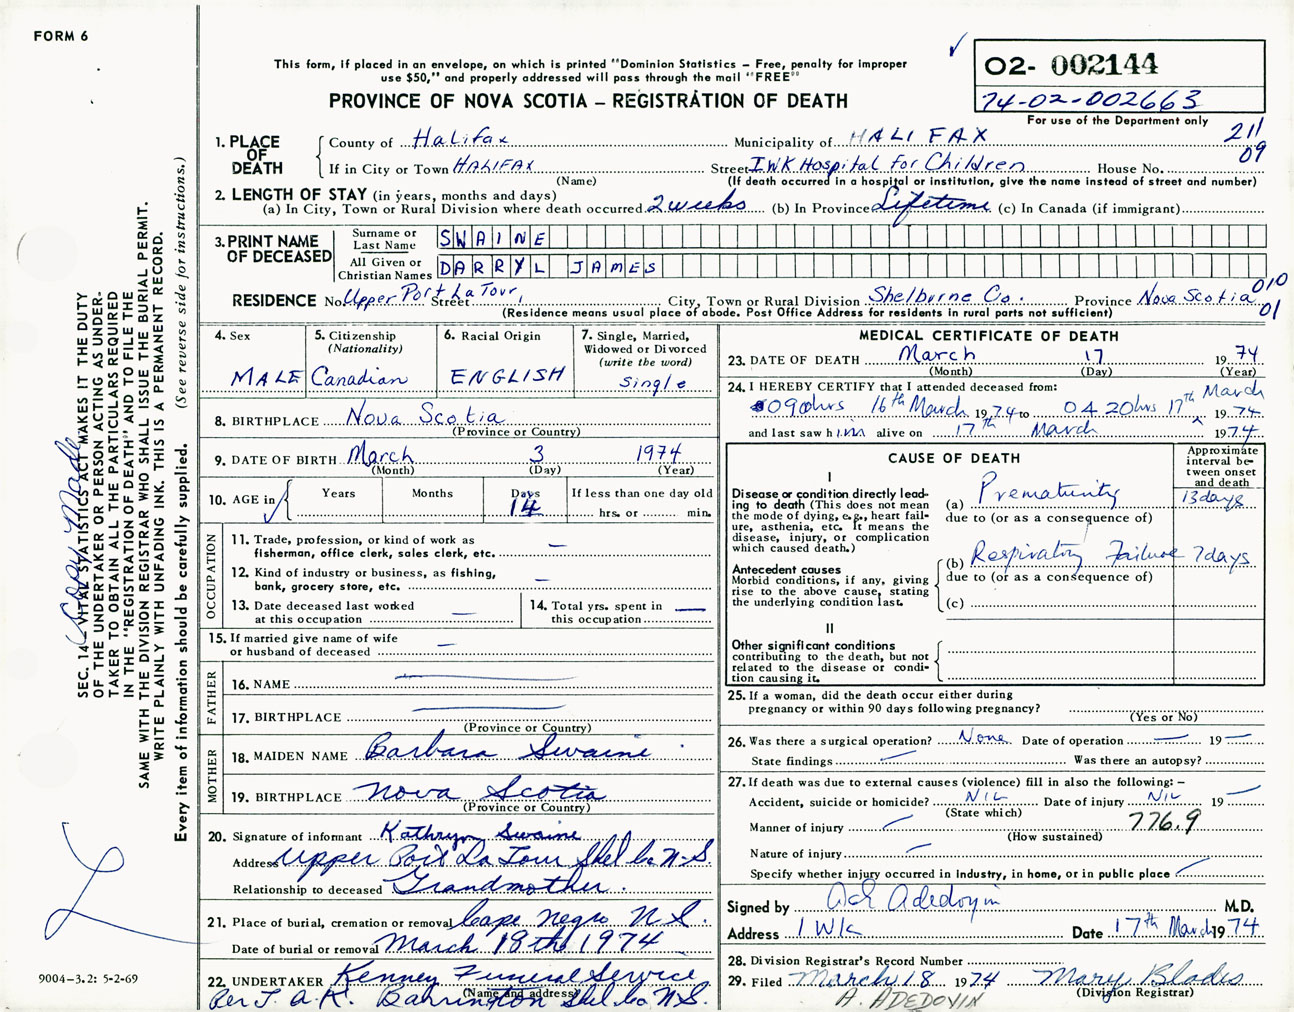 FORM 6
This form, if placed in an envelope, on which is printed "Dominion Statistics – Free, penalty for improper
use $50," and properly addressed will pass through the mail "FREE"
PROVINCE OF NOVA SCOTIA – REGISTRATION OF DEATH
02- 002144
74-02-002663
For use of the Department only
211
09
1. PLACE OF DEATH
County of Halifax Municipality of HALIFAX
If in City or Town HALIFAX Street IWK Hospital For Children House No.
(Name) (If death occurred in a hospital or institution, give the name instead of street and number)
2. LENGTH OF STAY (in years, months and days)
(a) In City, Town or Rural Division where death occurred 2 weeks (b) In Province Lifetime (c) In Canada (if immigrant)
3. PRINT NAME OF DECEASED
Surname or Last Name SWAINE
All Given or Christian Names DARRYL JAMES
RESIDENCE No. Street Upper Port La Tour, City, Town or Rural Division Shelburne Co. Province Nova Scotia 010
01
(Residence means usual place of abode. Post Office Address for residents in rural parts not sufficient)
4. Sex MALE
5. Citizenship (Nationality) Canadian
6. Racial Origin ENGLISH
7. Single, Married, Widowed or Divorced (write the word) Single
8. BIRTHPLACE Nova Scotia
(Province or Country)
9. DATE OF BIRTH March 3 1974
(Month) (Day) (Year)
10. AGE in Years Months Days 14 If less than one day old
hrs. or min.
OCCUPATION
11. Trade, profession, or kind of work as
fisherman, office clerk, sales clerk, etc. —
12. Kind of industry or business, as fishing,
bank, grocery store, etc. —
13. Date deceased last worked
at this occupation —
14. Total yrs. spent in
this occupation —
15. If married give name of wife
or husband of deceased —
FATHER
16. NAME —
17. BIRTHPLACE —
(Province or Country)
MOTHER
18. MAIDEN NAME Barbara Swaine
19. BIRTHPLACE Nova Scotia
(Province or Country)
20. Signature of informant Kathryn Swaine
Address Upper Port La Tour Shel Co N.S.
Relationship to deceased Grandmother.
21. Place of burial, cremation or removal Cape Negro N.S.
Date of burial or removal March 18th 1974
22. UNDERTAKER Kenney Funeral Service
(Name and address)
Per J. A. K. Barrington Shel Co N.S.
MEDICAL CERTIFICATE OF DEATH
23. DATE OF DEATH March 17 1974
(Month) (Day) (Year)
24. I HEREBY CERTIFY that I attended deceased from:
0900hrs 16th March 1974 to 0420hrs 17th March 1974
and last saw him alive on 17th March 1974
CAUSE OF DEATH
Approximate interval between onset and death
I
Disease or condition directly leading to death (This does not
mean the mode of dying, e.g., heart failure, asthenia, etc. It means the
disease, injury, or complication
which caused death.)
(a) Prematurity 13days
due to (or as a consequence of)
Antecedent causes
Morbid conditions, if any, giving
rise to the above cause, stating
the underlying condition last.
(b) Respiratory Failure 7days
due to (or as a consequence of)
(c)
II
Other significant conditions
contributing to the death, but not
related to the disease or condition causing it.
25. If a woman, did the death occur either during
pregnancy or within 90 days following pregnancy?
(Yes or No)
26. Was there a surgical operation? None Date of operation — 19 —
State findings — Was there an autopsy?
27. If death was due to external causes (violence) fill in also the following: –
Accident, suicide or homicide? NIL Date of injury NIL 19 —
(State which)
Manner of injury — 776.9
(How sustained)
Nature of injury —
Specify whether injury occurred in industry, in home, or in public place —
Signed by A Adedoyin M.D.
Address IWK Date 17th March 1974
28. Division Registrar's Record Number
29. Filed March 18 1974 Mary Blades
(Division Registrar)
A. ADEDOYIN
SEC. 14 – VITAL STATISTICS ACT MAKES IT THE DUTY
OF THE UNDERTAKER OR PERSON ACTING AS UNDER-
TAKER TO OBTAIN ALL THE PARTICULARS REQUIRED
IN THE "REGISTRATION OF DEATH" AND TO FILE THE
SAME WITH THE DIVISION REGISTRAR WHO SHALL ISSUE THE BURIAL PERMIT.
WRITE PLAINLY WITH UNFADING INK. THIS IS A PERMANENT RECORD.
Every item of information should be carefully supplied. (See reverse side for instructions.)
Copy Made
9004–3.2: 5-2-69